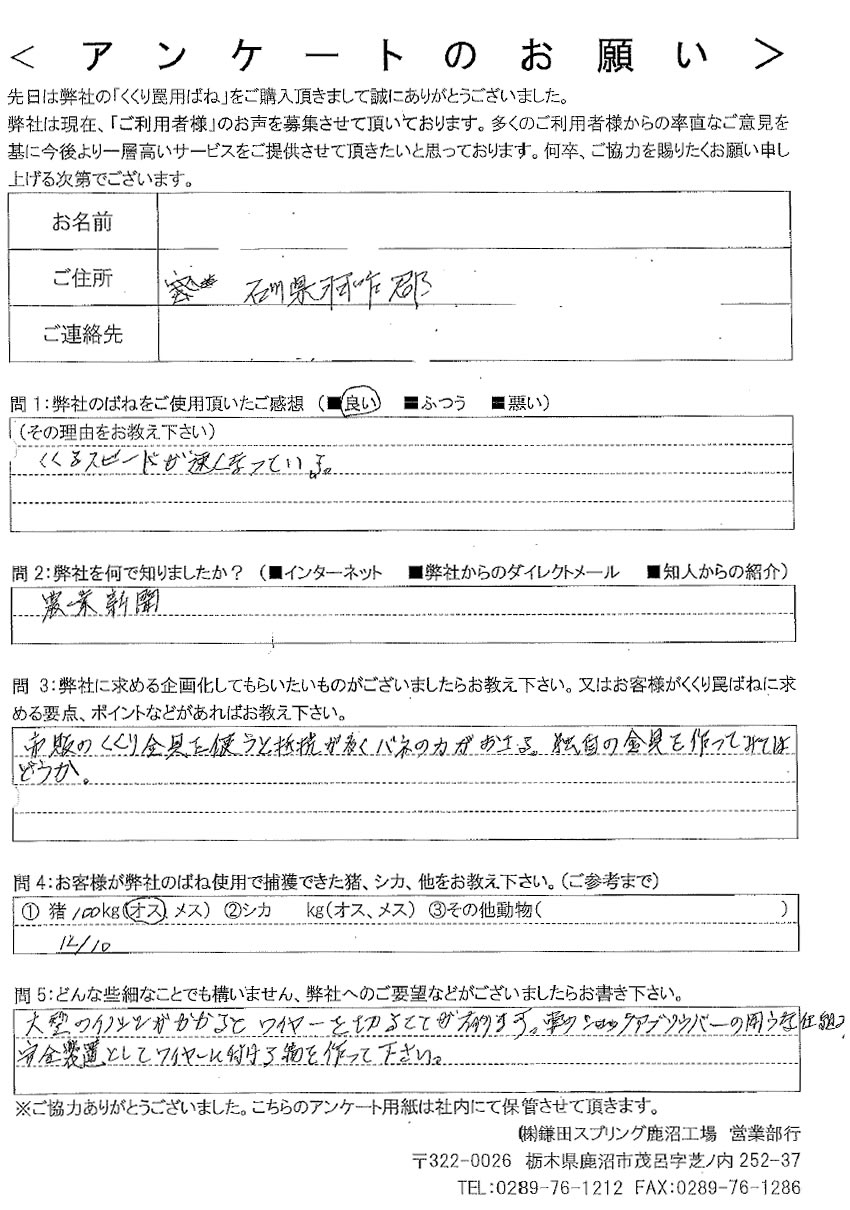 ＜ アンケートのお願い ＞
先日は弊社の「くくり罠用ばね」をご購入頂きまして誠にありがとうございました。
弊社は現在、「ご利用者様」のお声を募集させて頂いております。多くのご利用者様からの率直なご意見を
基に今後より一層高いサービスをご提供させて頂きたいと思っております。何卒、ご協力を賜りたくお願い申し
上げる次第でございます。
お名前
ご住所 石川県羽咋郡
ご連絡先
問1：弊社のばねをご使用頂いたご感想 （■良い ■ふつう ■悪い）
（その理由をお教え下さい）
くくるスピードが速くなっています。
問2：弊社を何で知りましたか？ （■インターネット ■弊社からのダイレクトメール ■知人からの紹介）
農業新聞
問 3：弊社に求める企画化してもらいたいものがございましたらお教え下さい。又はお客様がくくり罠ばねに求
める要点、ポイントなどがあればお教え下さい。
市販のくくり金具を使うと抵抗が多くバネの力がおちる。独自の金具を作ってみては
どうか。
問4：お客様が弊社のばね使用で捕獲できた猪、シカ、他をお教え下さい。（ご参考まで）
① 猪 100kg（オス、メス） ②シカ kg（オス、メス） ③その他動物（ ）
12/10
問5：どんな些細なことでも構いません、弊社へのご要望などがございましたらお書き下さい。
大型のイノシシがかかると ワイヤーを切ることが有ります。車のショックアブソウバーの用うな仕組み
安全装置としてワイヤーに付ける物を作って下さい。
※ご協力ありがとうございました。こちらのアンケート用紙は社内にて保管させて頂きます。
㈱鎌田スプリング鹿沼工場 営業部行
〒322-0026 栃木県鹿沼市茂呂字芝ノ内 252-37
TEL:0289-76-1212 FAX:0289-76-1286